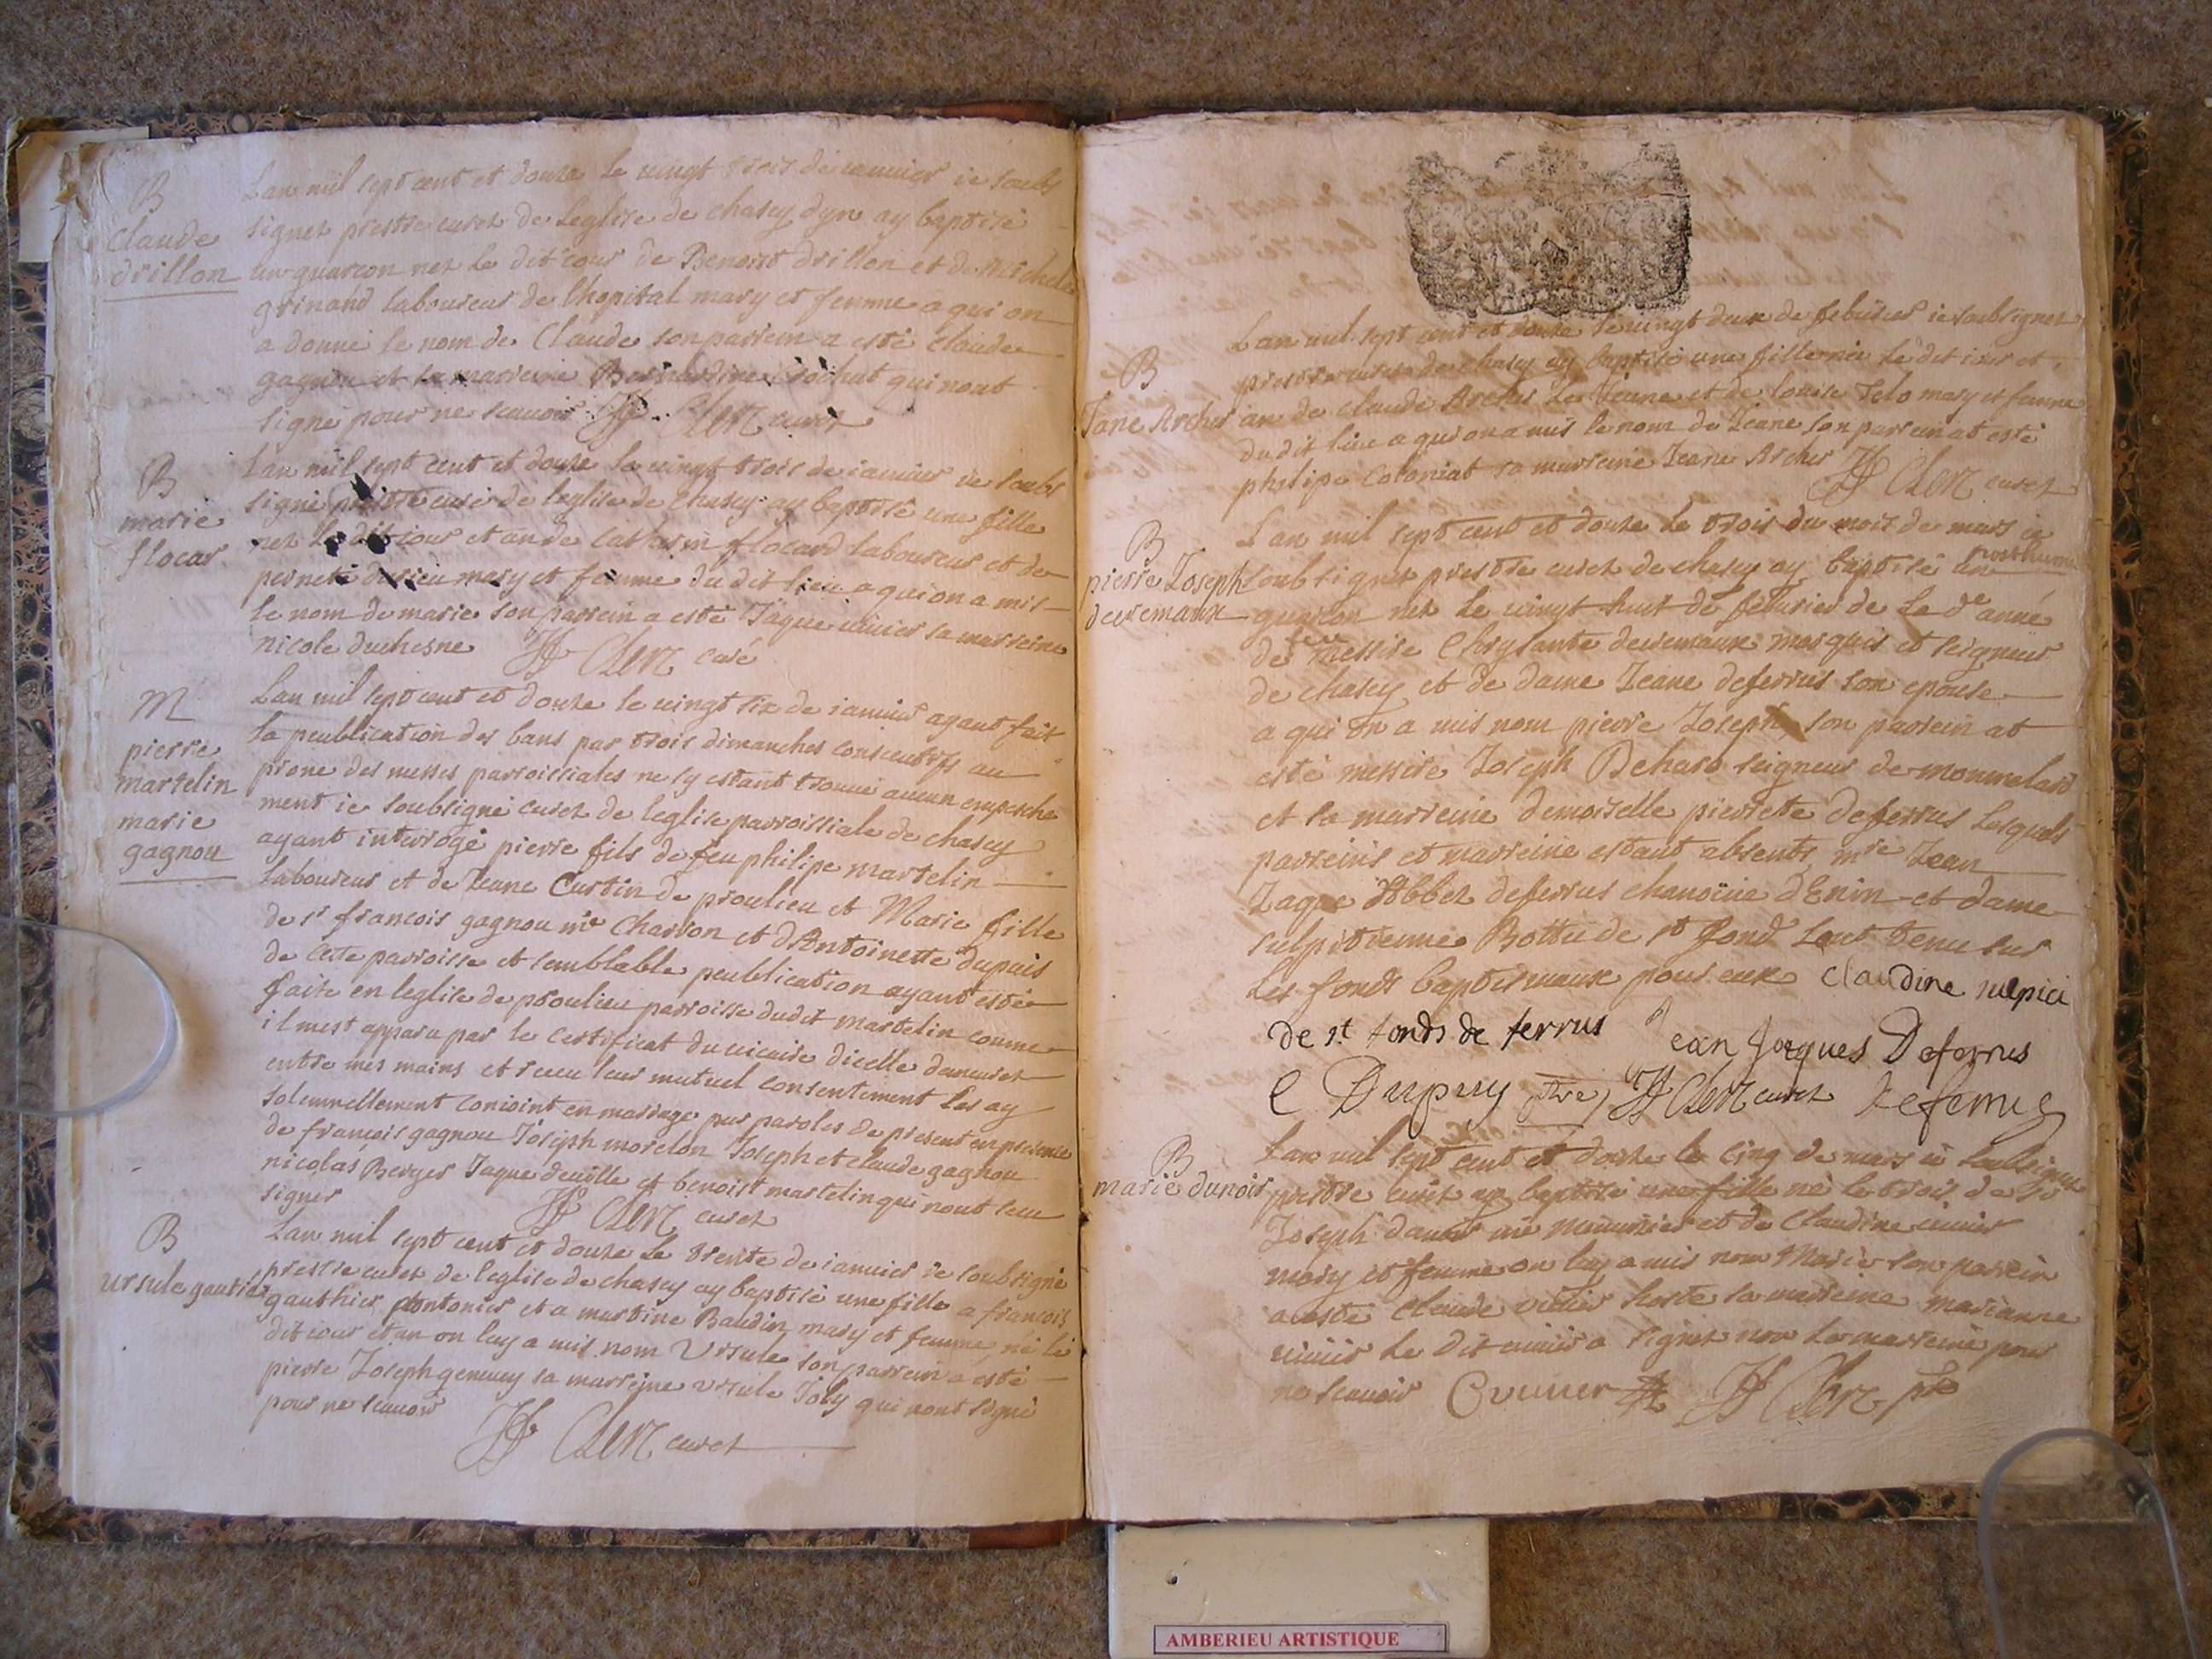 B
Claude
drillon
Lan mil sept cent et douze le vingt trois de ianuier ie soubs
signez prestre curez de Leglise de chasey dyn ay baptisé
un guarcon nez le dit iour de Benoist drillon et de Michele
grinand laboureur de lhopital mary et femme a qui on
a donné le nom de Claude son parrein a esté claude
gagnou et sa marreine Bernardine Cochut qui nont
signé pour ne scauoir Clerz curez
B
marie
flocar
Lan mil sept cent et douze le vingt trois de ianuier ie soubs
signé prestre curé de leglise de Chasey ay baptisé une fille
nez le dit iour et an de Catherin flocard laboureur et de
pernete durieu mary et femme du dit lieu a qui on a mis
le nom de marie son parrein a esté Jaque uiuier sa marreine
nicole duchesne Clerz curé
M
pierre
martelin
marie
gagnou
Lan mil sept cent et douze le vingt six de ianuier ayant fait
la peublication des bans par trois dimanches consecutifs au
prone des messes parroissiales ne sy estant trouué aucun empesche
ment ie soubsigné curez de leglise parroissiale de chasey
ayant interrogé pierre fils de feu philipe martelin
laboureur et de Jeane Curtin de proulieu et Marie fille
de sr francois gagnou me Charron et dAntoinette dupuis
de cette parroisse et semblable peublication ayant estée
faite en leglise de proulieu parroisse dudit martelin comme
il mest apparu par le certificat du uicaire dicelle demeurez
entre mes mains et receu leur mutuel consentement les ay
solemnellement conioint en mariage par paroles de present en presence
de francois gagnou Joseph morelon Joseph et claude gagnou
nicolas Berger Jaque deuille et benoist martelin qui nont sceu
signer Clerz curez
B
ursule gautier
Lan mil sept cent et douze le trente de ianuier ie soubsigné
prestre curez de leglise de chasey ay baptisé une fille a francois
gauthier pontonier et a martine Baudin mary et femme né le
dit iour et an on luy a mis nom Ursule son parrein a esté
pierre Joseph geneuey sa marreine ursule Joly qui nont signé
pour ne scauoir
Clerz curez
B
Jane Archer
Lan mil sept cent et douze le vingt deux de feburier ie soubsignez
prestre curez de chasey ay baptisé une fille née le dit iour et
an de claude Archer le Jeune et de louise Telo mary et femme
dudit lieu a qui on a mis le nom de Jeane son parrein at esté
philipe Coloniat sa marreine Jeane Archer Clerz curez
B
pierre Joseph
deuremaux
Lan mil sept cent et douze le trois du mois de mars ie
soubsignez prestre curez de chasey ay baptisé un posthume
guarcon nez le vingt huit de feburier de le de année
de feu Messire Chrylante deuremaux marquis et seigneur
de chasey et de dame Jeane deferrus son epouse
a qui on a mis nom pierre Joseph son parrein at
esté messire Joseph Dehare seigneur de montrelard
et la marreine demoiselle pierrete deferrus Lesquels
parreins et marreine estant absents mre Jean
Jaque Abbez deferrus chanoine dEnin et dame
sulpitienne Bottu de st fond lont tenu sur
Les fonds baptismaux pour eux Claudine sulpici
de st fonds de ferrus Jean Jacques Deferrus
C Dupuy ptre Clerz curez deferrus
B
marie dunoir
Lan mil sept cent et douze le cinq de mars ie soubsignez
prestre curez ay baptisé une fille né le trois de sr
Joseph me et de Claudine uiuier
mary et femme on luy a mis nom Marie son parrein
a esté Claude uiuier hoste la marreine marianne
uiuier le dit uiuier a signez non la marreine pour
ne scauoir Cuuier Clerz ptre
AMBERIEU ARTISTIQUE